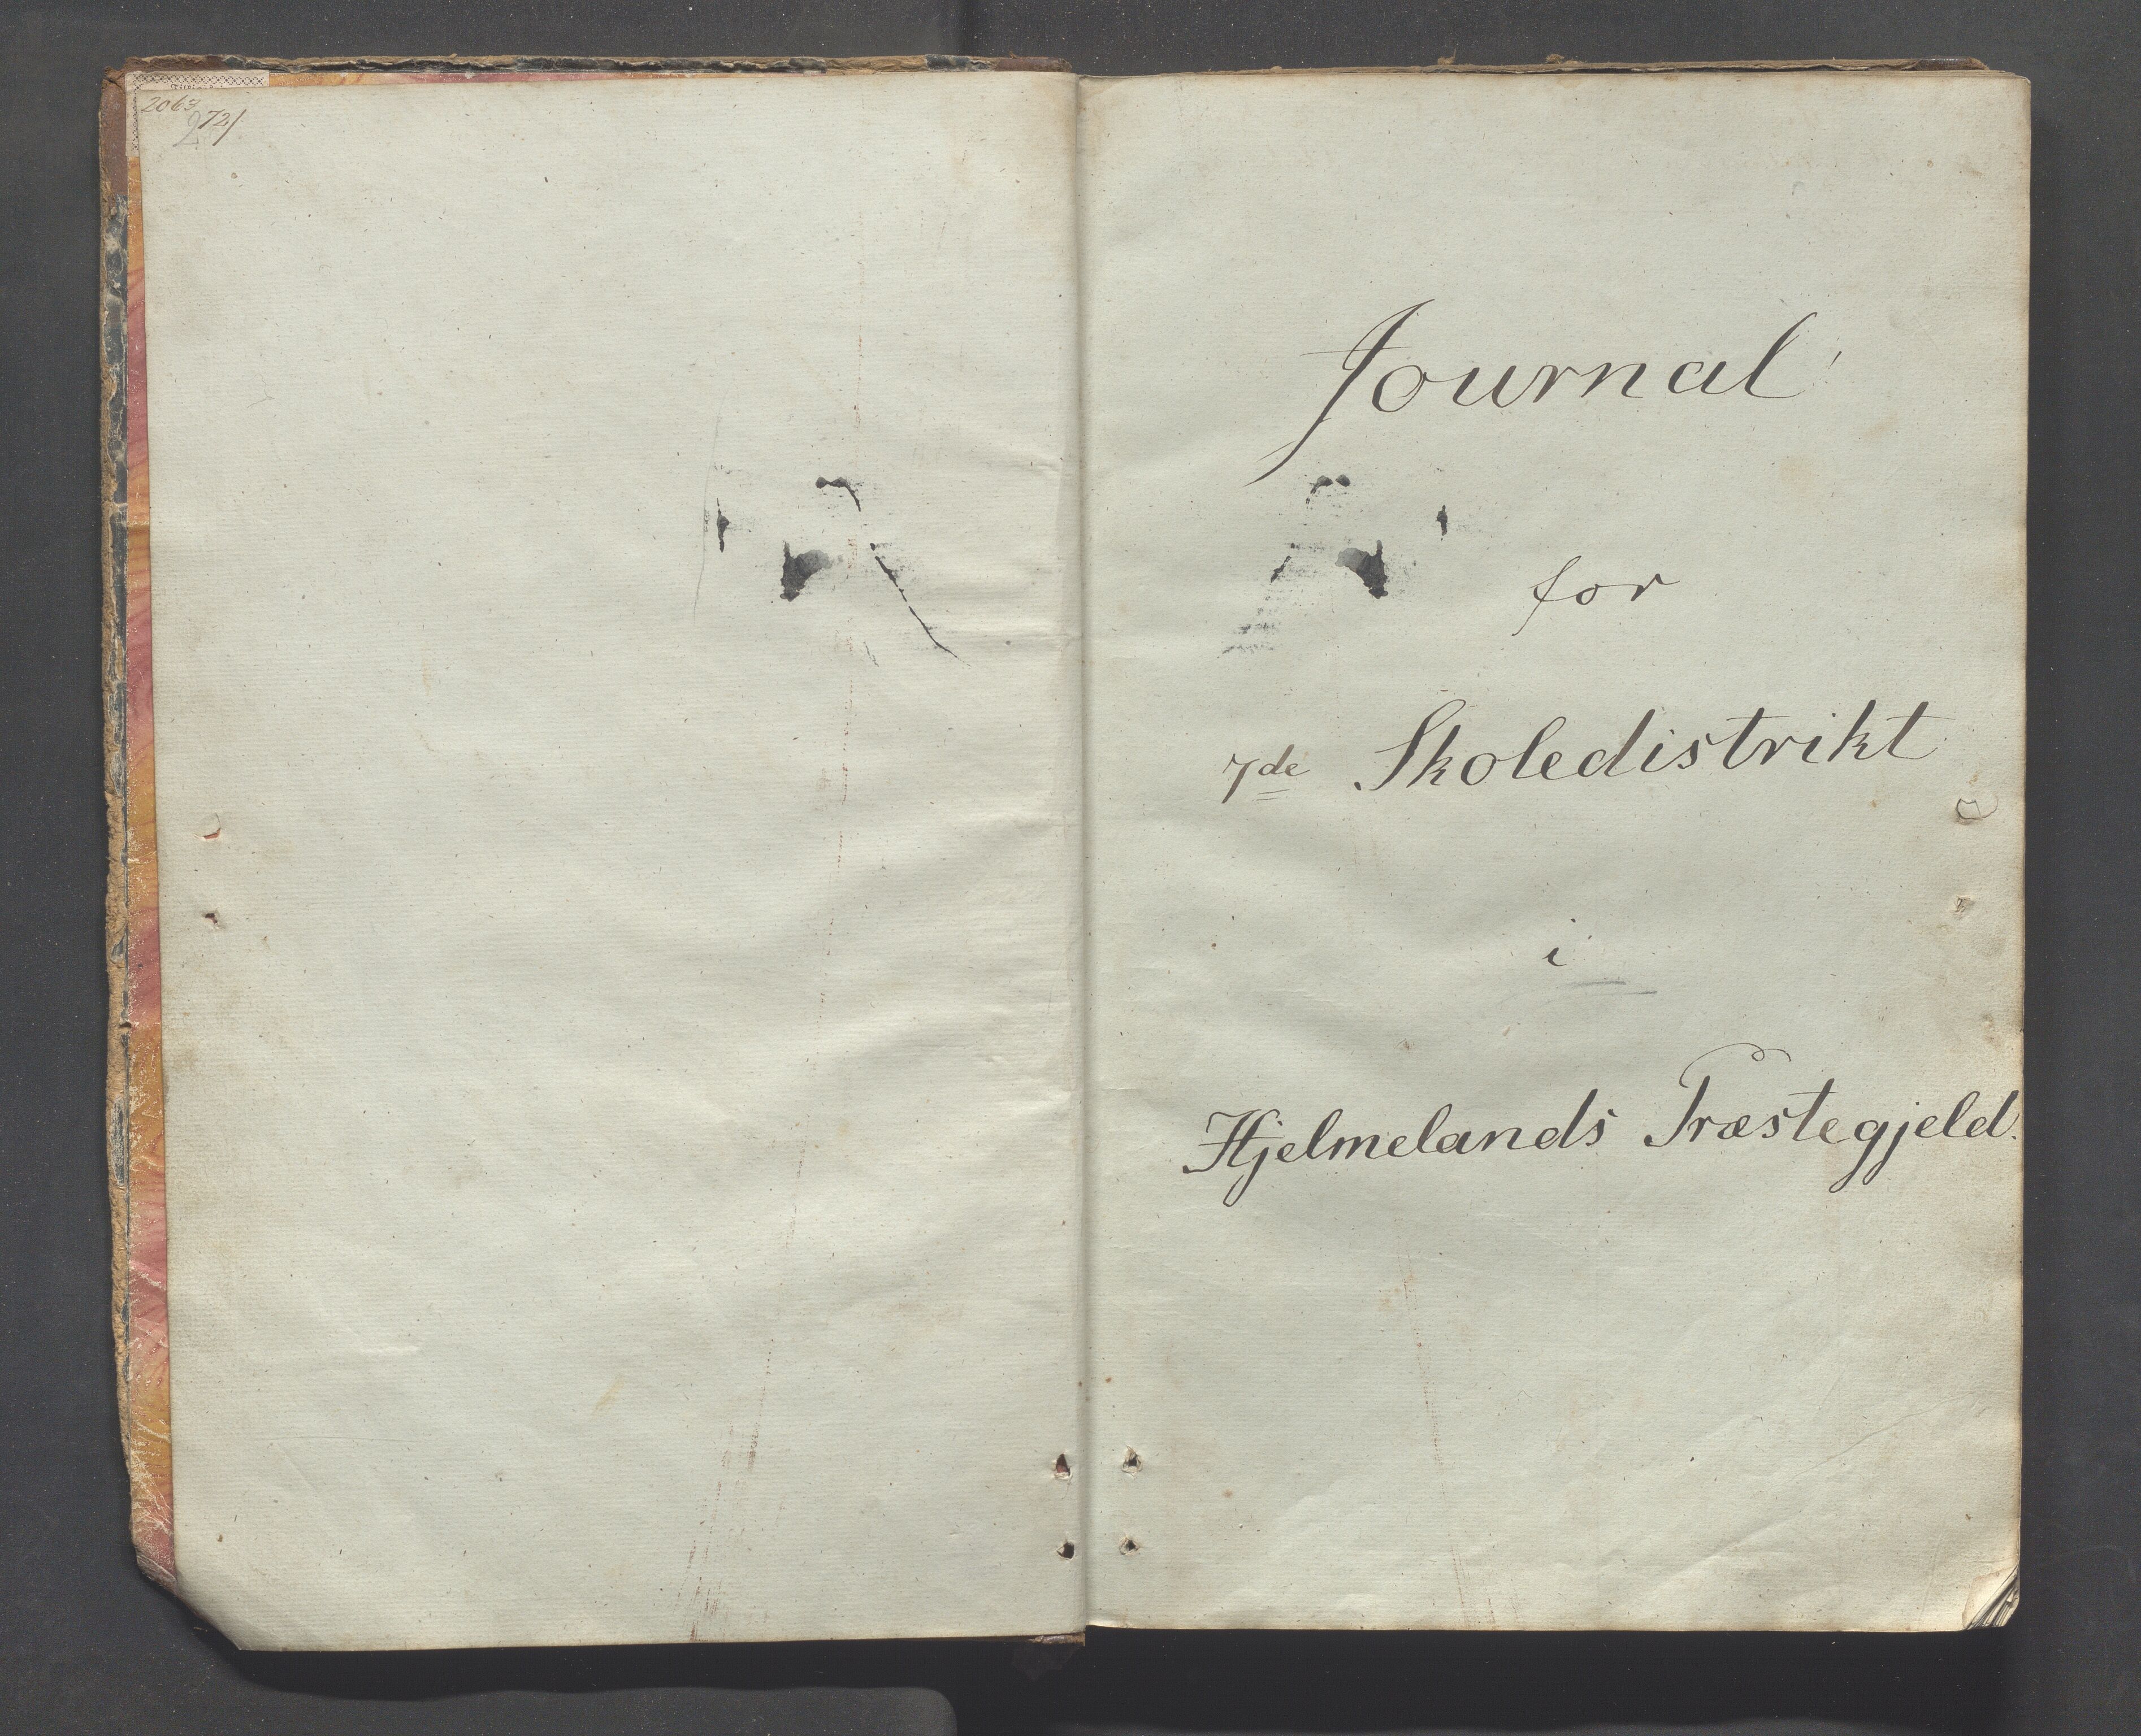 2063
2721
Journal
for
7de Skoledistrikt
i
Hjelmelands Præstegjeld.